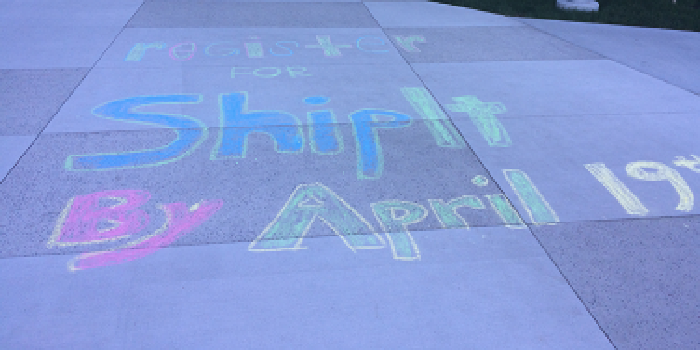 register
FOR
ShipIt
By April 19th